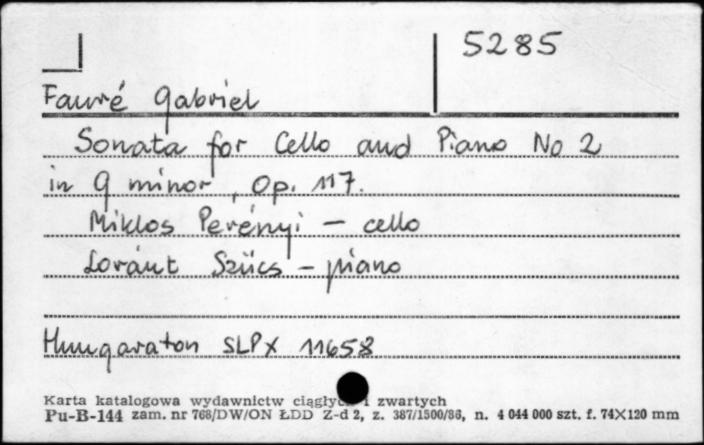 5285
Fauré Gabriel
Sonata for Cello and Piano No 2
in g minor, Op. 117.
Miklos Perényi – cello
Loránt Szücs – piano
Hungaraton SLPX 11658
Karta katalogowa wydawnictw ciągłyc i zwartych
Pu-B-144 zam. nr 768/DW/ON ŁDD Z-d 2, z. 387/1500/86, n. 4 044 000 szt. f. 74X120 mm